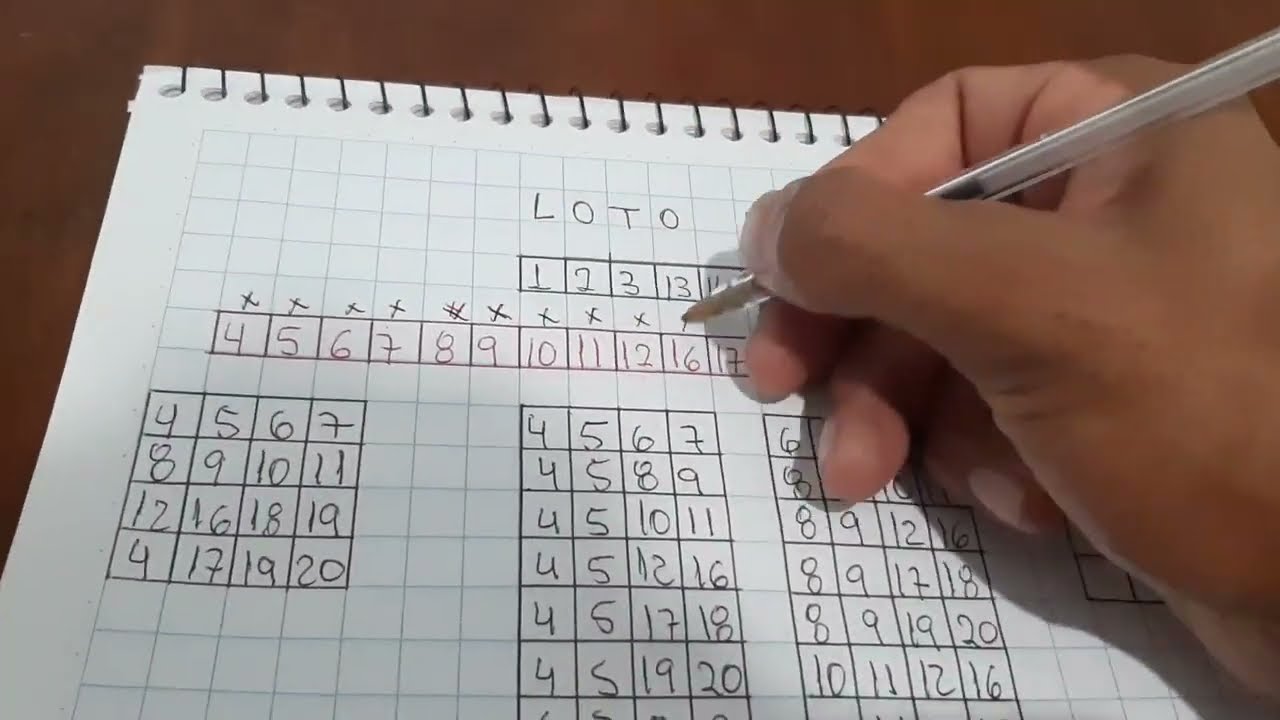 LOTO
1 2 3 13
x x x x x x x x x
4 5 6 7 8 9 10 11 12 16 17
4 5 6 7
8 9 10 11
12 16 18 19
4 17 19 20
4 5 6 7
4 5 8 9
4 5 10 11
4 5 12 16
4 5 17 18
4 5 19 20
6
8
8 9 12 16
8 9 17 18
8 9 19 20
10 11 12 16